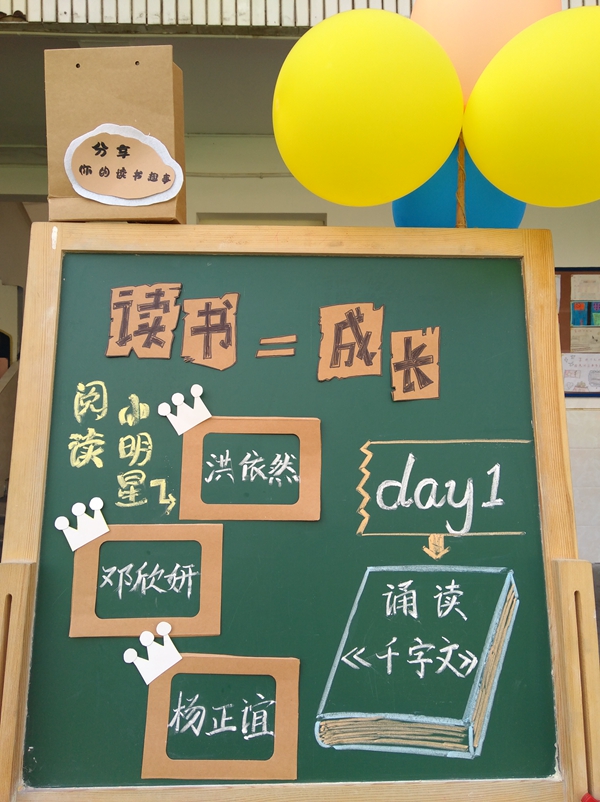 分享
你的读书趣事
读书=成长
阅读
小明星
洪依然
邓欣妍
杨正谊
day1
诵读
《千字文》